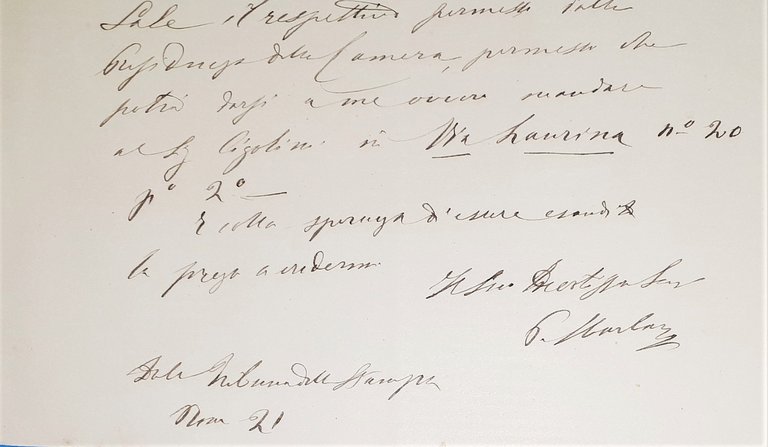 Sale il respettivo permesso dalla
Presidenza della Camera, permesso che
potrà darsi a me ovvero mandare
al Sg Cigolini in Via Laurina nº 20
pº 2º —
E colla speranza d'essere esaudito
la prego a credermi
Il Suo
P.
Dalla Tribuna della Stampa
Roma 21